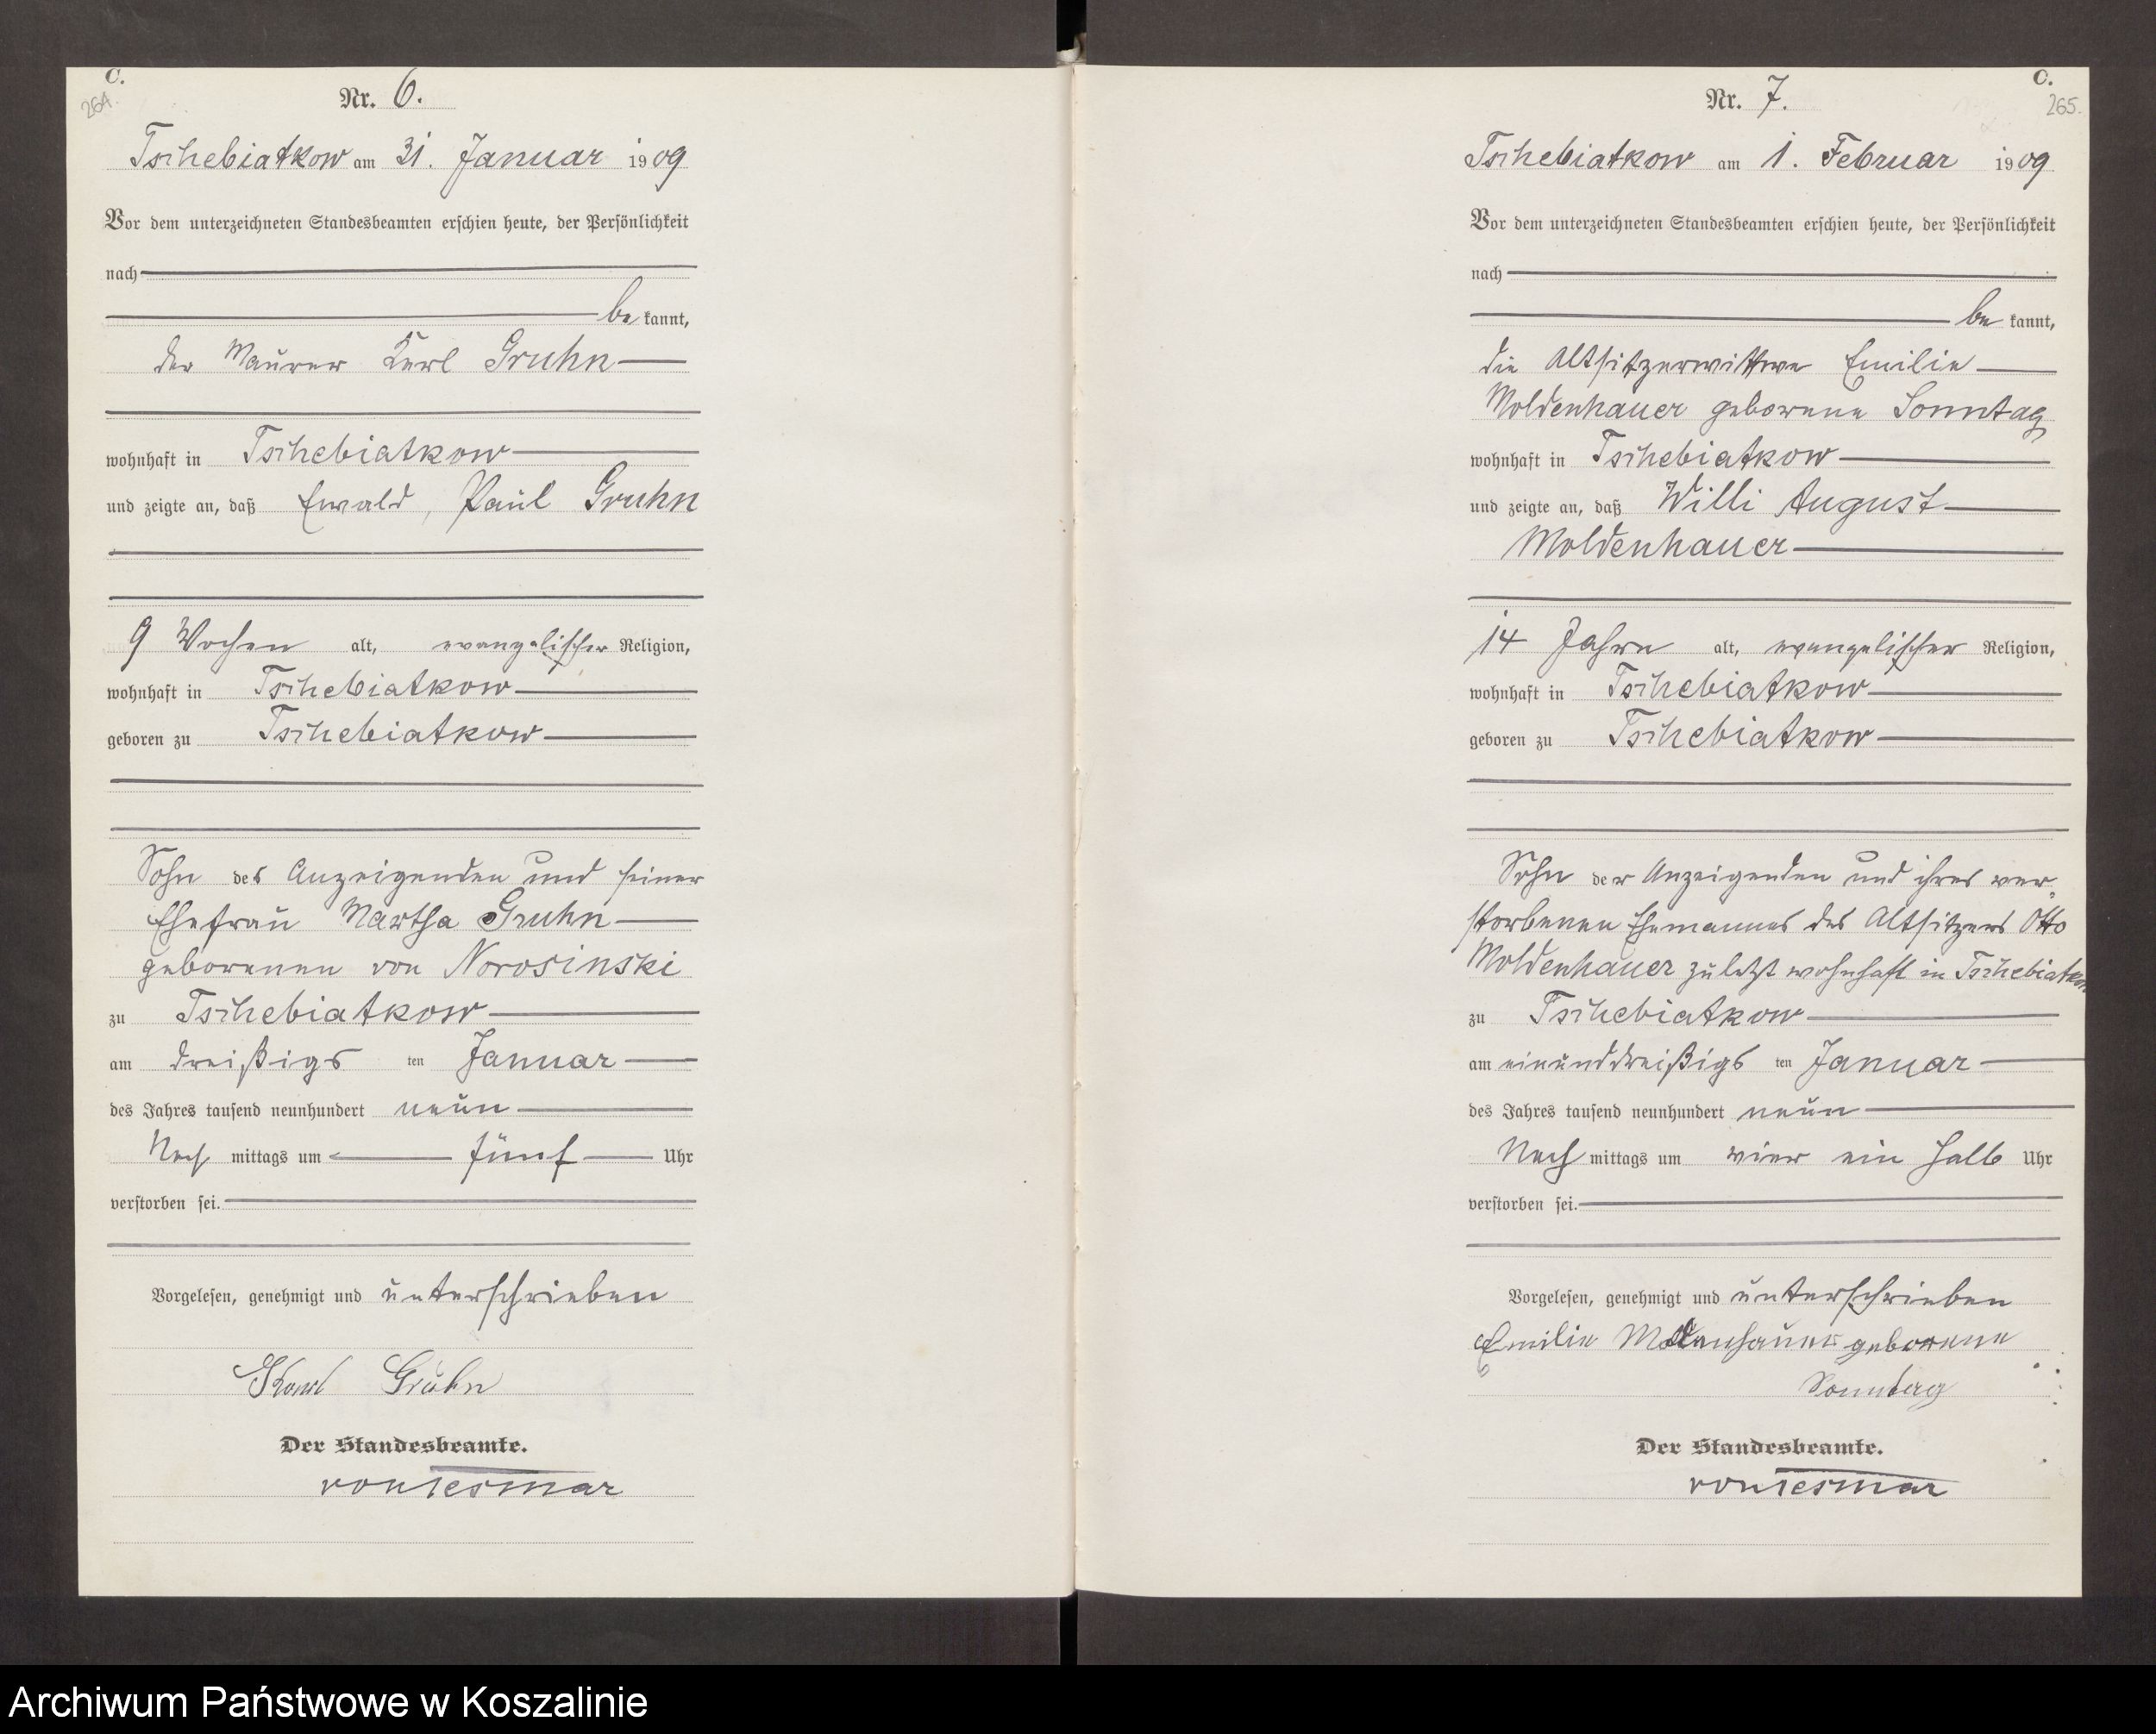 C.
264.
Nr. 6.
Tschebiatkow am 31. Januar 1909
Vor dem unterzeichneten Standesbeamten erschien heute, der Persönlichkeit
nach
be kannt,
der Maurer Karl Gruhn
wohnhaft in Tschebiatkow
und zeigte an, daß Ewald, Paul Gruhn
9 Wochen alt, evangelischer Religion,
wohnhaft in Tschebiatkow
geboren zu Tschebiatkow
Sohn des Anzeigenden und seiner
Ehefrau Martha Gruhn
geborenen von Norosinski
zu Tschebiatkow
am dreißigs ten Januar
des Jahres tausend neunhundert neun
Nach mittags um fünf Uhr
verstorben sei.
Vorgelesen, genehmigt und unterschrieben
Karl Gruhn
Der Standesbeamte.
von Tesmar
C.
265.
Nr. 7.
Tschebiatkow am 1. Februar 1909
Vor dem unterzeichneten Standesbeamten erschien heute, der Persönlichkeit
nach
be kannt,
die Altsitzerwittwe Emilie
Moldenhauer geborene Sonntag
wohnhaft in Tschebiatkow
und zeigte an, daß Willi August
Moldenhauer
14 Jahre alt, evangelischer Religion,
wohnhaft in Tschebiatkow
geboren zu Tschebiatkow
Sohn der Anzeigenden und ihres ver-
storbenen Ehemannes des Altsitzers Otto
Moldenhauer zuletzt wohnhaft in Tschebiatkow
zu Tschebiatkow
am einunddreißigs ten Januar
des Jahres tausend neunhundert neun
Nach mittags um vier ein halb Uhr
verstorben sei.
Vorgelesen, genehmigt und unterschrieben
Emilie Moldenhauer geborene
Sonntag
Der Standesbeamte.
von Tesmar
Archiwum Państwowe w Koszalinie